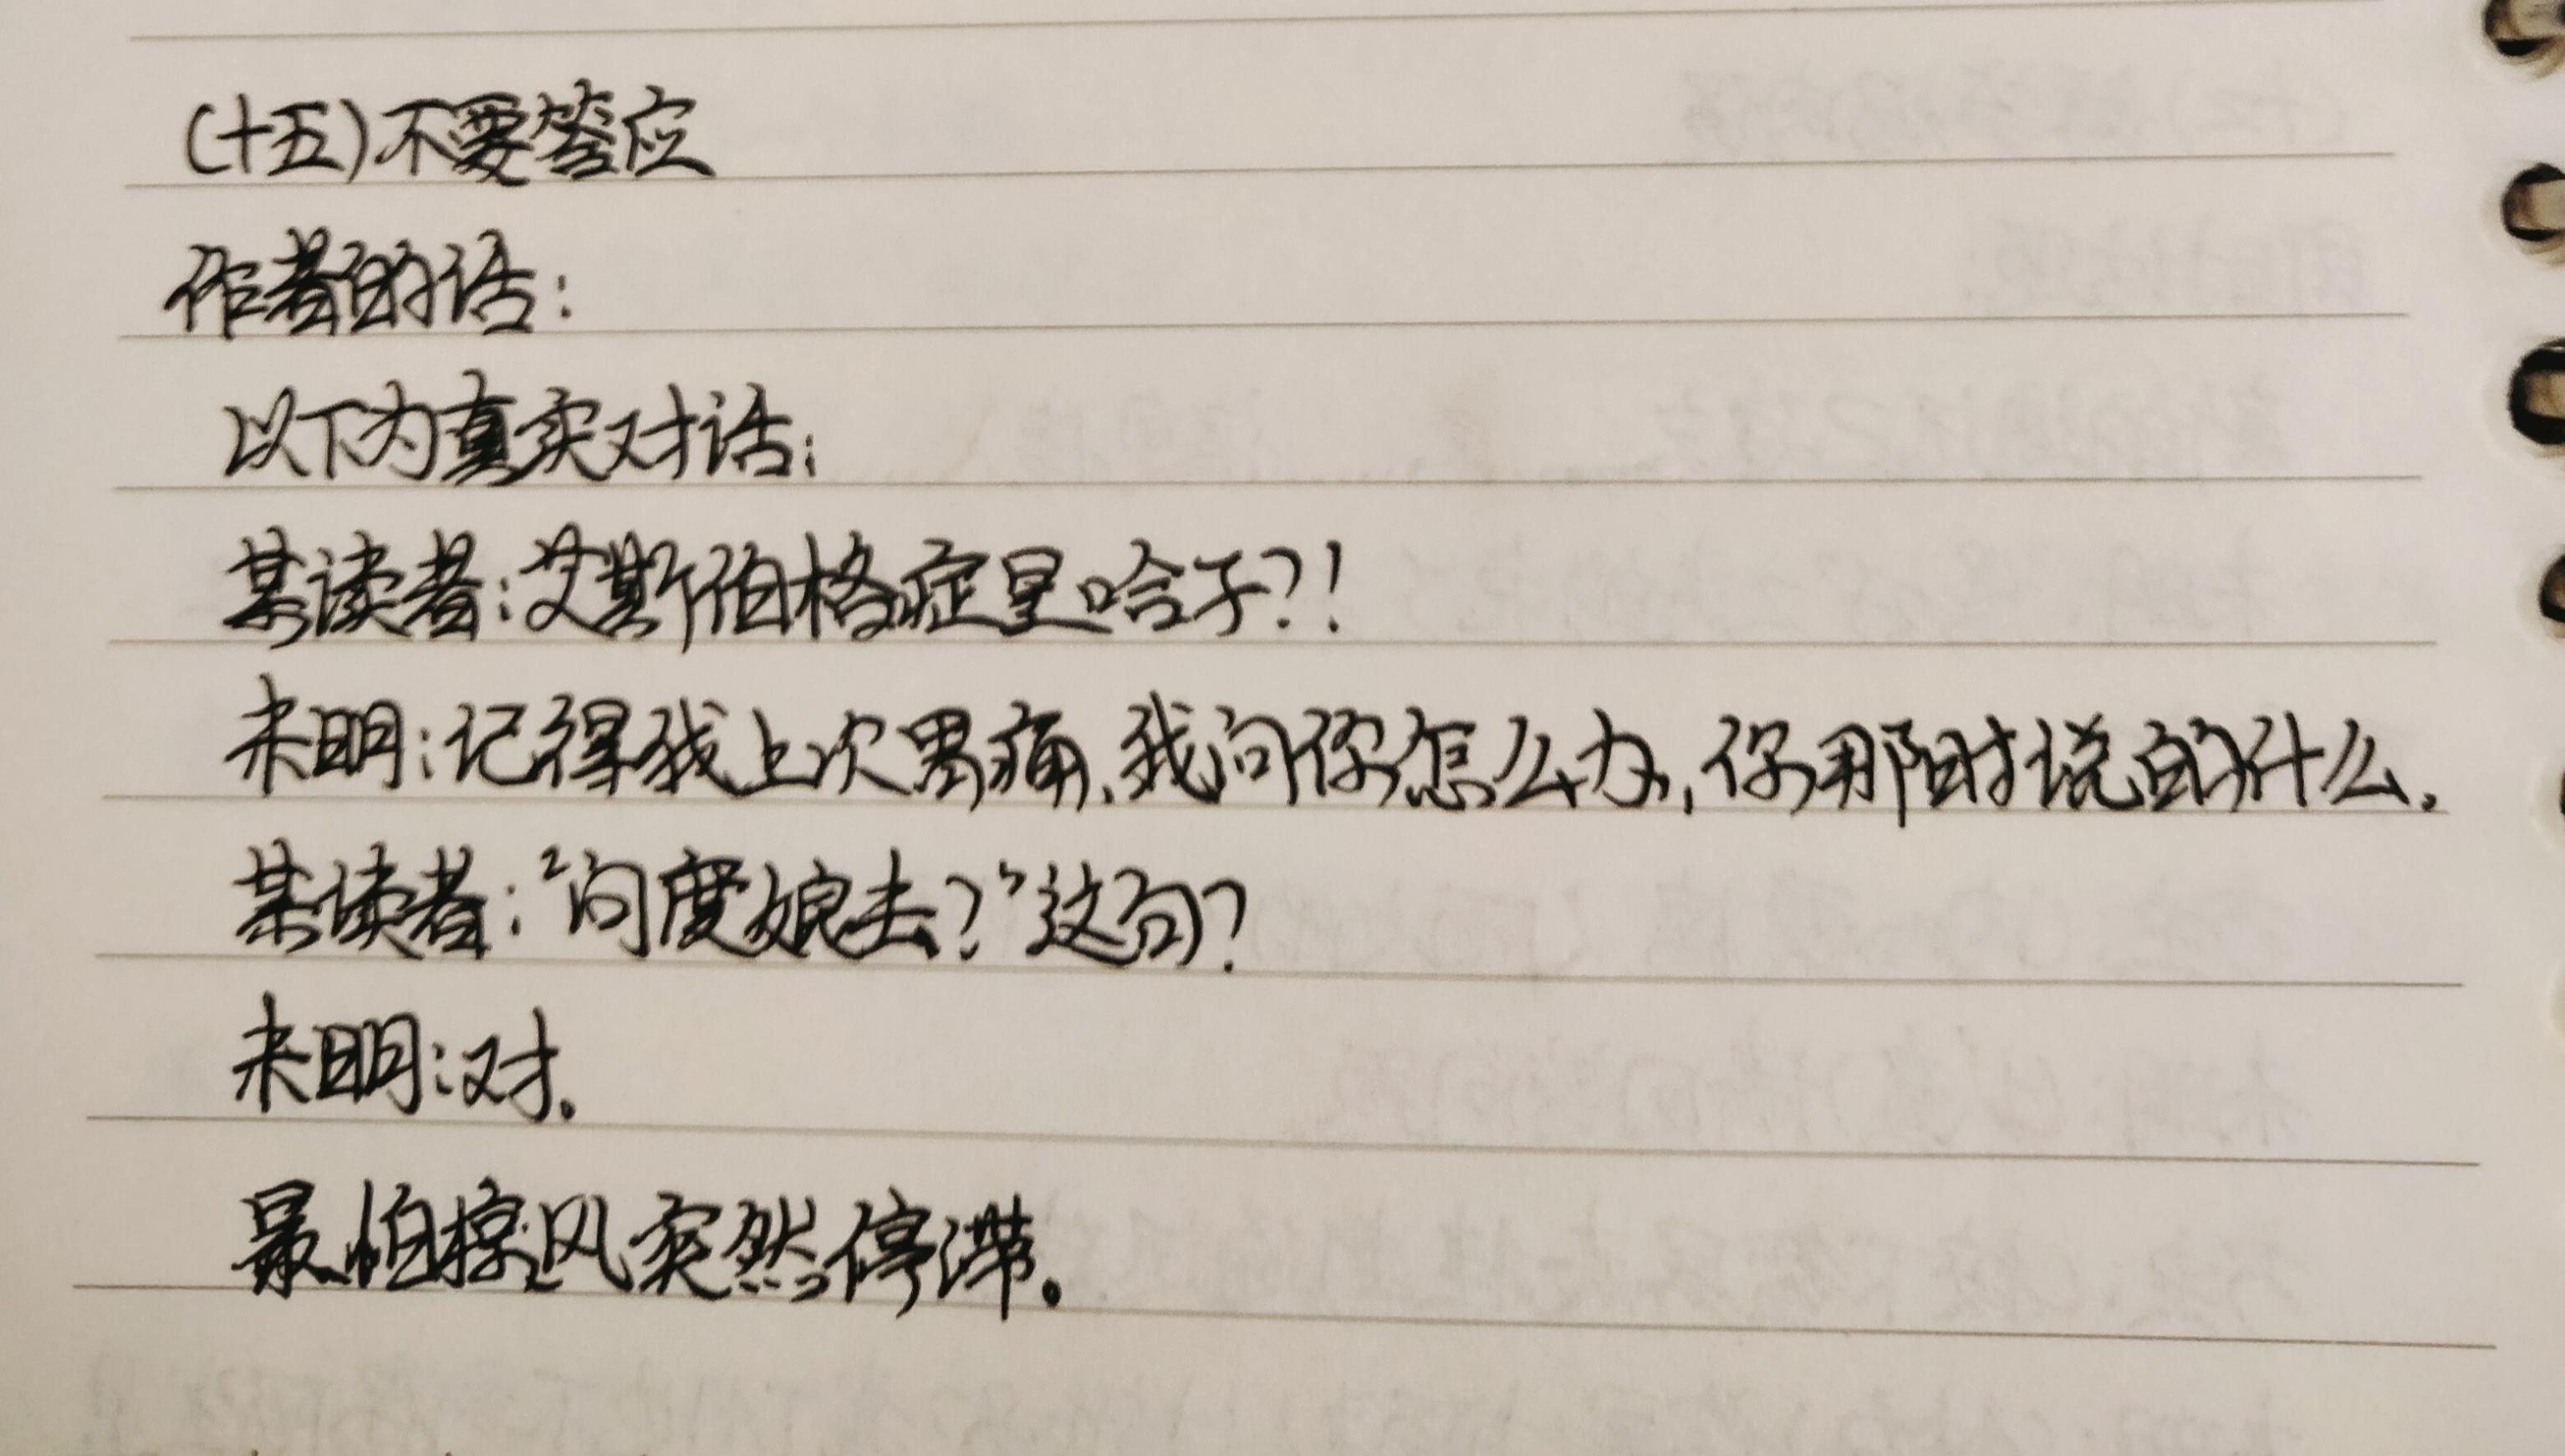 (十五)不要答应
作者的话:
以下为真实对话:
某读者:艾斯伯格症是啥子?!
未明:记得我上次胃痛,我问你怎么办,你那时说的什么.
某读者:“问度娘去?”这句?
未明:对.
最怕掠风突然停滞。